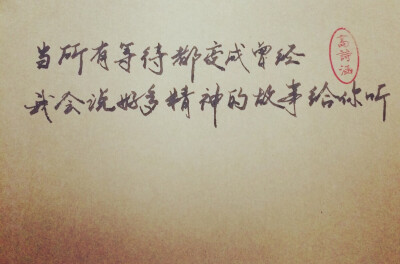 当所有等待都变成曾经
我会说好多精神的故事给你听
高诗涵